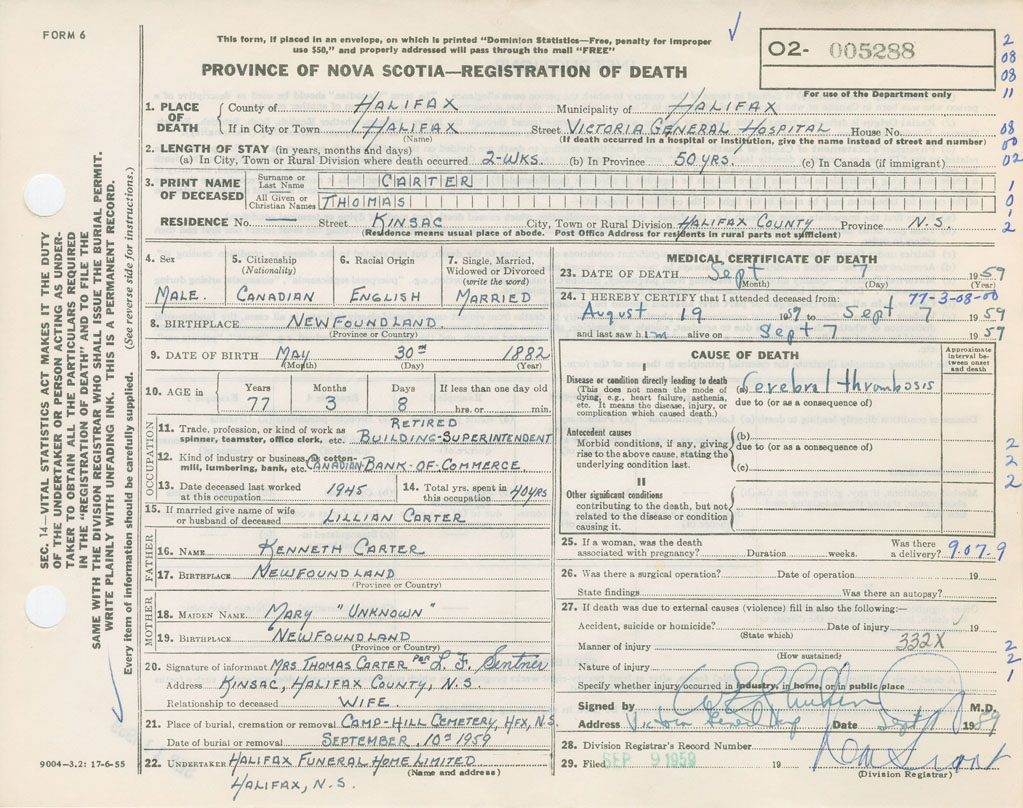 FORM 6
This form, if placed in an envelope, on which is printed "Dominion Statistics—Free, penalty for improper
use $50," and properly addressed will pass through the mail "FREE"
PROVINCE OF NOVA SCOTIA—REGISTRATION OF DEATH
02- 005288
For use of the Department only
2
08
08
11
08
00
02
1
0
1
2
SEC. 14—VITAL STATISTICS ACT MAKES IT THE DUTY
OF THE UNDERTAKER OR PERSON ACTING AS UNDER-
TAKER TO OBTAIN ALL THE PARTICULARS REQUIRED
IN THE "REGISTRATION OF DEATH" AND TO FILE THE
SAME WITH THE DIVISION REGISTRAR WHO SHALL ISSUE THE BURIAL PERMIT.
WRITE PLAINLY WITH UNFADING INK. THIS IS A PERMANENT RECORD.
Every item of information should be carefully supplied. (See reverse side for instructions.)
1. PLACE OF DEATH
County of HALIFAX Municipality of HALIFAX
If in City or Town HALIFAX Street VICTORIA GENERAL HOSPITAL House No.
(Name) (If death occurred in a hospital or institution, give the name instead of street and number)
2. LENGTH OF STAY (in years, months and days)
(a) In City, Town or Rural Division where death occurred 2-WKS. (b) In Province 50 YRS. (c) In Canada (if immigrant)
3. PRINT NAME OF DECEASED
Surname or Last Name CARTER
All Given or Christian Names THOMAS
RESIDENCE No. — Street KINSAC City, Town or Rural Division HALIFAX COUNTY Province N.S.
(Residence means usual place of abode. Post Office Address for residents in rural parts not sufficient)
4. Sex
MALE.
5. Citizenship
(Nationality)
CANADIAN
6. Racial Origin
ENGLISH
7. Single, Married,
Widowed or Divorced
(write the word)
MARRIED
8. BIRTHPLACE NEWFOUNDLAND.
(Province or Country)
9. DATE OF BIRTH MAY 30TH 1882
(Month) (Day) (Year)
10. AGE in
Years Months Days If less than one day old
77 3 8 hrs. or min.
OCCUPATION
11. Trade, profession, or kind of work as
spinner, teamster, office clerk, etc. RETIRED
BUILDING-SUPERINTENDENT
12. Kind of industry or business, as cotton-
mill, lumbering, bank, etc. CANADIAN-BANK-OF-COMMERCE.
13. Date deceased last worked
at this occupation 1945
14. Total yrs. spent in
this occupation 40YRS
15. If married give name of wife
or husband of deceased LILLIAN CARTER
FATHER
16. NAME KENNETH CARTER
17. BIRTHPLACE NEWFOUNDLAND
(Province or Country)
MOTHER
18. MAIDEN NAME MARY "UNKNOWN"
19. BIRTHPLACE NEWFOUNDLAND
(Province or Country)
20. Signature of informant MRS THOMAS CARTER per L. F. Sentner
Address KINSAC, HALIFAX COUNTY, N.S.
Relationship to deceased WIFE.
21. Place of burial, cremation or removal CAMP-HILL CEMETERY, HFX, N.S.
Date of burial or removal SEPTEMBER, 10TH 1959
22. UNDERTAKER HALIFAX FUNERAL HOME LIMITED
(Name and address)
HALIFAX, N.S.
9004-3.2: 17-6-55
MEDICAL CERTIFICATE OF DEATH
23. DATE OF DEATH Sept 7 1959
(Month) (Day) (Year)
24. I HEREBY CERTIFY that I attended deceased from: 77-3-08-00
August 19 1959 to Sept 7 1959
and last saw him alive on Sept 7 1959
CAUSE OF DEATH
Approximate
interval be-
tween onset
and death
I
Disease or condition directly leading to death
(This does not mean the mode of
dying, e.g., heart failure, asthenia,
etc. It means the disease, injury, or
complication which caused death.)
(a) Cerebral thrombosis
due to (or as a consequence of)
Antecedent causes
Morbid conditions, if any, giving
rise to the above cause, stating the
underlying condition last.
(b)
due to (or as a consequence of)
(c)
2
2
2
II
Other significant conditions
contributing to the death, but not
related to the disease or condition
causing it.
25. If a woman, was the death
associated with pregnancy? Duration weeks. Was there
a delivery? 9.07.9
26. Was there a surgical operation? Date of operation 19
State findings Was there an autopsy?
27. If death was due to external causes (violence) fill in also the following:—
Accident, suicide or homicide? Date of injury 19
(State which)
Manner of injury 332X
(How sustained)
2
2
1
Nature of injury
Specify whether injury occurred in industry, in home, or in public place
Signed by M.D.
Address Victoria General Hosp Date Sept 1959
28. Division Registrar's Record Number
29. Filed SEP 9 1959 19
(Division Registrar)